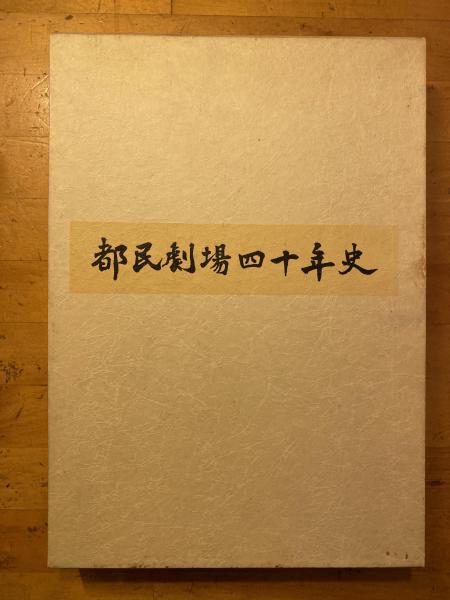 都民劇場四十年史